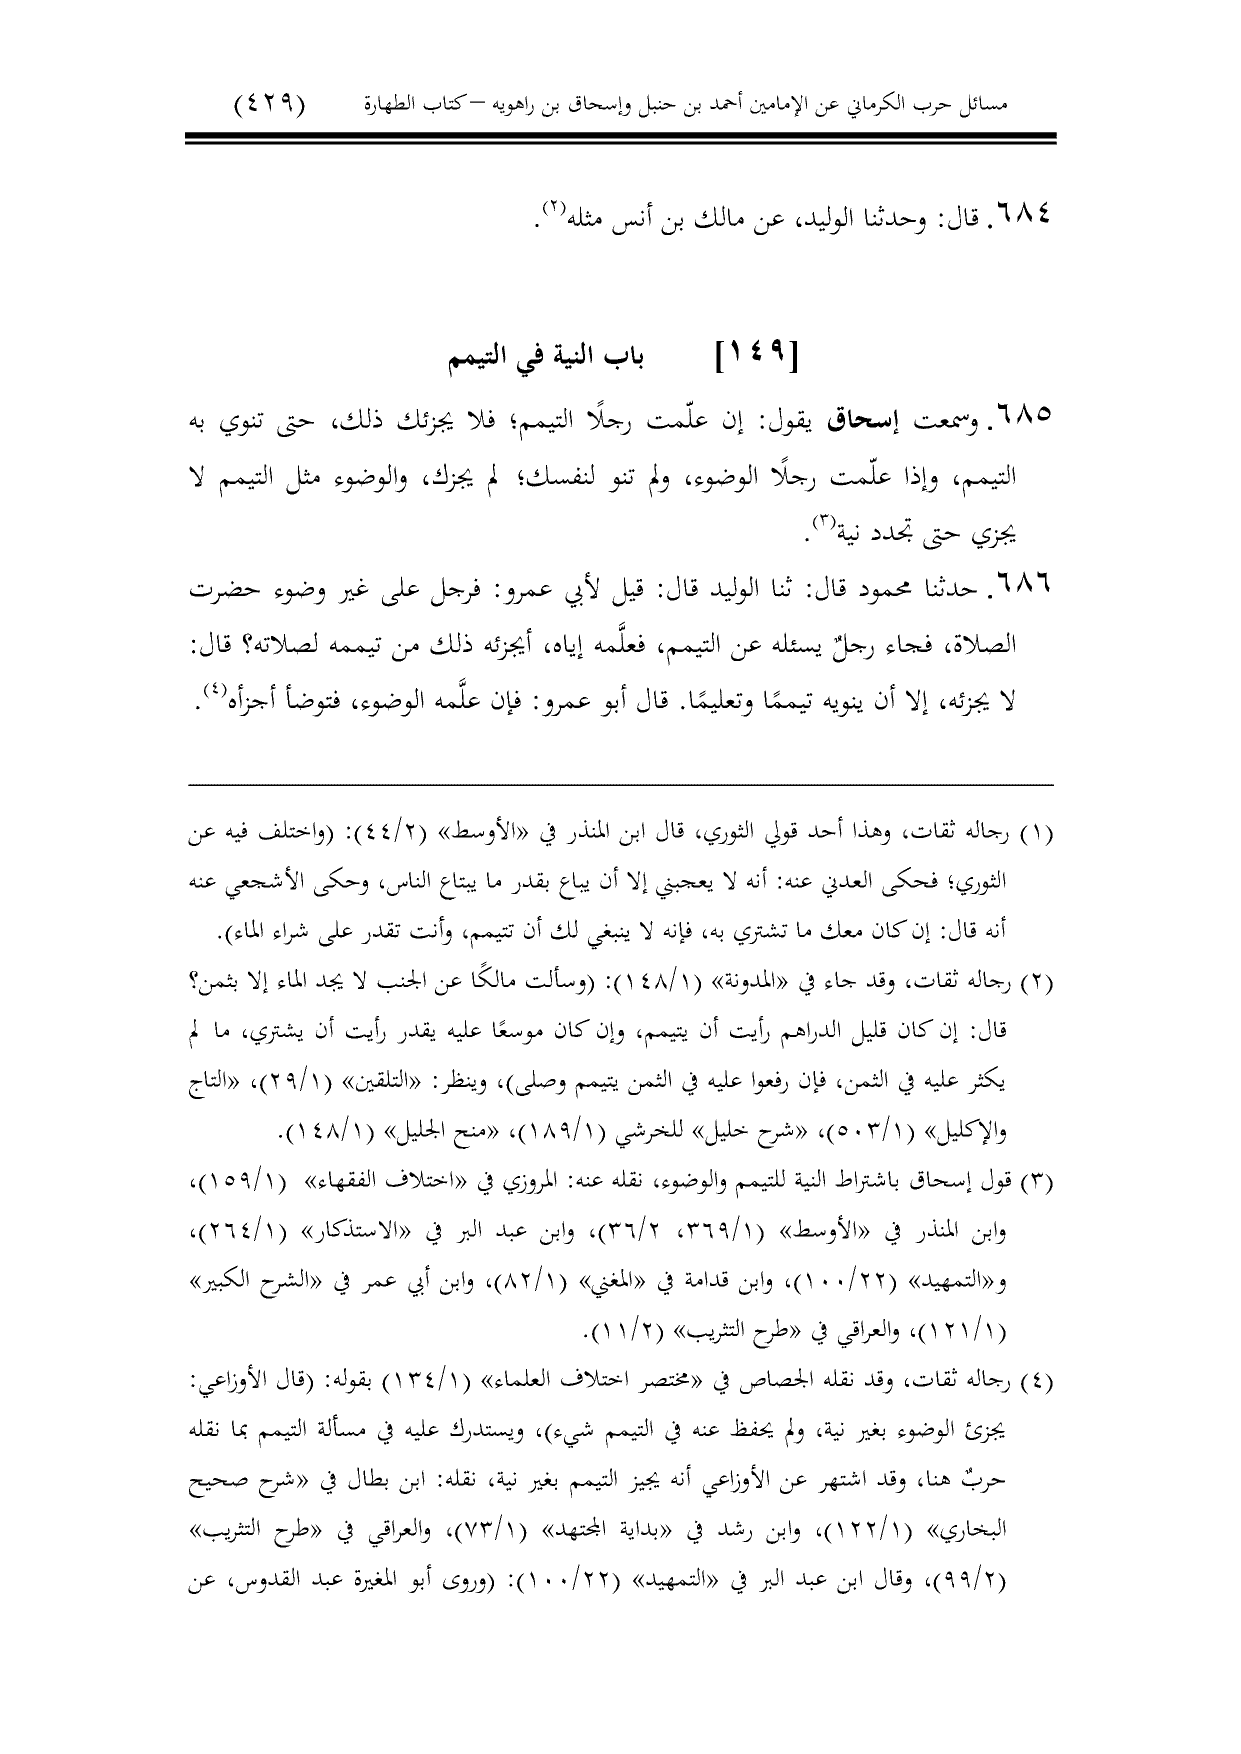 مسائل حرب الكرماني عن الإمامين أحمد بن حنبل وإسحاق بن راهويه –كتاب الطهارة (٤٢٩)
٦٨٤. قال: وحدثنا الوليد، عن مالك بن أنس مثله(٢).
[١٤٩] باب النية في التيمم
٦٨٥. وسمعت إسحاق يقول: إن علّمت رجلًا التيمم؛ فلا يجزئك ذلك، حتى تنوي به
التيمم، وإذا علّمت رجلًا الوضوء، ولم تنو لنفسك؛ لم يجزك، والوضوء مثل التيمم لا
يجزي حتى تجدد نية(٣).
٦٨٦. حدثنا محمود قال: ثنا الوليد قال: قيل لأبي عمرو: فرجل على غير وضوء حضرت
الصلاة، فجاء رجلٌ يسئله عن التيمم، فعلَّمه إياه، أيجزئه ذلك من تيممه لصلاته؟ قال:
لا يجزئه، إلا أن ينويه تيممًا وتعليمًا. قال أبو عمرو: فإن علَّمه الوضوء، فتوضأ أجزأه(٤).
(١) رجاله ثقات، وهذا أحد قولي الثوري، قال ابن المنذر في «الأوسط» (٤٤/٢): (واختلف فيه عن
الثوري؛ فحكى العدني عنه: أنه لا يعجبني إلا أن يباع بقدر ما يبتاع الناس، وحكى الأشجعي عنه
أنه قال: إن كان معك ما تشتري به، فإنه لا ينبغي لك أن تتيمم، وأنت تقدر على شراء الماء).
(٢) رجاله ثقات، وقد جاء في «المدونة» (١٤٨/١): (وسألت مالكًا عن الجنب لا يجد الماء إلا بثمن؟
قال: إن كان قليل الدراهم رأيت أن يتيمم، وإن كان موسعًا عليه يقدر رأيت أن يشتري، ما لم
يكثر عليه في الثمن، فإن رفعوا عليه في الثمن يتيمم وصلى)، وينظر: «التلقين» (٢٩/١)، «التاج
والإكليل» (٥٠٣/١)، «شرح خليل» للخرشي (١٨٩/١)، «منح الجليل» (١٤٨/١).
(٣) قول إسحاق باشتراط النية للتيمم والوضوء، نقله عنه: المروزي في «اختلاف الفقهاء» (١٥٩/١)،
وابن المنذر في «الأوسط» (٣٦٩/١، ٣٦/٢)، وابن عبد البر في «الاستذكار» (٢٦٤/١)،
و«التمهيد» (١٠٠/٢٢)، وابن قدامة في «المغني» (٨٢/١)، وابن أبي عمر في «الشرح الكبير»
(١٢١/١)، والعراقي في «طرح التثريب» (١١/٢).
(٤) رجاله ثقات، وقد نقله الجصاص في «مختصر اختلاف العلماء» (١٣٤/١) بقوله: (قال الأوزاعي:
يجزئ الوضوء بغير نية، ولم يحفظ عنه في التيمم شيء)، ويستدرك عليه في مسألة التيمم بما نقله
حربٌ هنا، وقد اشتهر عن الأوزاعي أنه يجيز التيمم بغير نية، نقله: ابن بطال في «شرح صحيح
البخاري» (١٢٢/١)، وابن رشد في «بداية المجتهد» (٧٣/١)، والعراقي في «طرح التثريب»
(٩٩/٢)، وقال ابن عبد البر في «التمهيد» (١٠٠/٢٢): (وروى أبو المغيرة عبد القدوس، عن